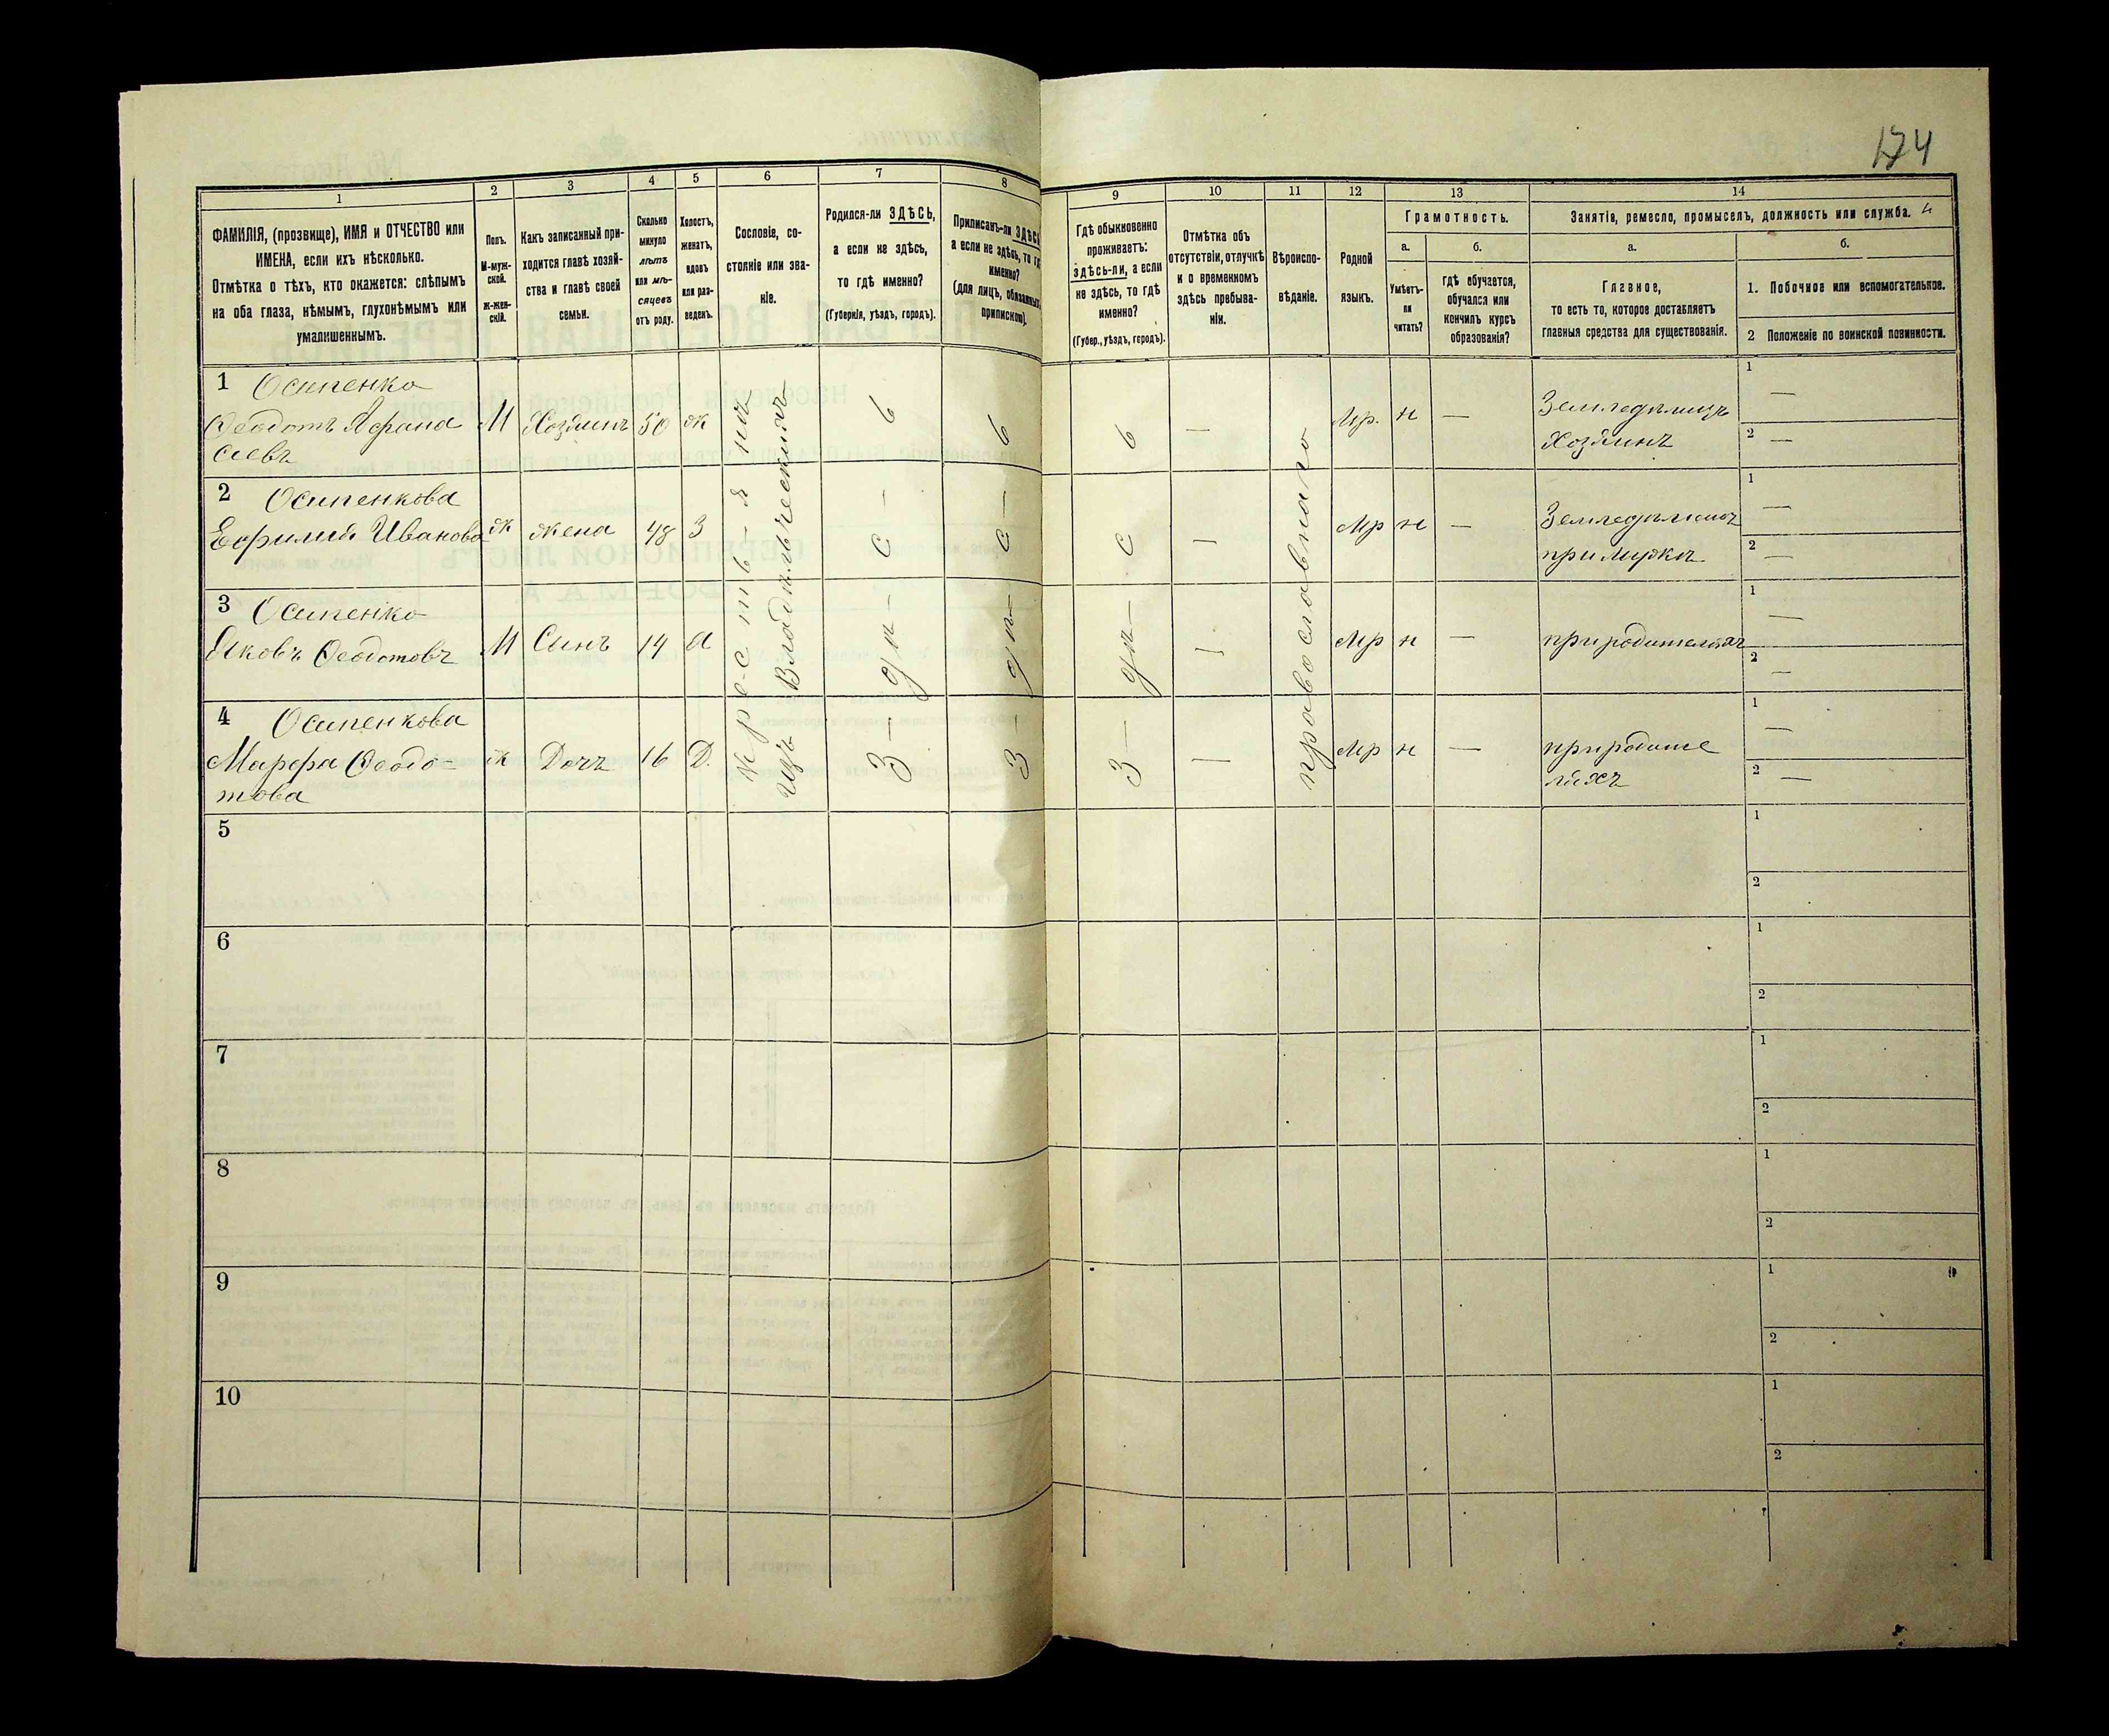 174
1
2
3
4
5
6
7
8
9
10
11
12
13
14
ФАМИЛІЯ, (прозвище), ИМЯ и ОТЧЕСТВО или
ИМЕНА, если ихъ нѣсколько.
Отмѣтка о тѣхъ, кто окажется: слѣпымъ
на оба глаза, нѣмымъ, глухонѣмымъ или
умалишеннымъ.
Полъ.
М-муж-
ской.
Ж-жен-
скій.
Какъ записанный при-
ходится главѣ хозяй-
ства и главѣ своей
семьи.
Сколько
минуло
лѣтъ
или мѣ-
сяцевъ
отъ роду.
Холостъ,
женатъ,
вдовъ
или раз-
веденъ.
Сословіе, со-
стояніе или зва-
ніе.
Родился-ли ЗДѢСЬ,
а если не здѣсь,
то гдѣ именно?
(Губернія, уѣздъ, городъ).
Приписанъ-ли ЗДѢСЬ
а если не здѣсь, то гдѣ
именно?
(для лицъ, обязанныхъ
припискою).
Гдѣ обыкновенно
проживаетъ:
здѣсь-ли, а если
не здѣсь, то гдѣ
именно?
(Губер., уѣздъ, городъ).
Отмѣтка объ
отсутствіи, отлучкѣ
и о временномъ
здѣсь пребыва-
ніи.
Вѣроиспо-
вѣданіе.
Родной
языкъ.
Грамотность.
а.
б.
Умѣетъ-
ли
читать?
гдѣ обучается,
обучался или
кончилъ курсъ
образованія?
Занятіе, ремесло, промыселъ, должность или служба.
а.
б.
Главное,
то есть то, которое доставляетъ
главныя средства для существованія.
1. Побочное или вспомогательное.
2 Положеніе по воинской повинности.
1 Осипенко
Ѳеодотъ Афана
сіевъ
М
Хозяинъ
50
ж
Мр.
н
—
Земледѣлецъ
Хозяинъ
1
—
2
—
2 Осипенкова
Ефимія Иванова
ж
жена
48
З
Мр
н
—
при мужѣ
1
—
2
—
3 Осипенко
Яковъ Ѳеодотовъ
М
Сынъ
14
Мр
н
—
при родителяхъ
1
—
2
—
4 Осипенкова
Марфа Ѳеодо-
това
ж
Дочь
16
Д.
Мр
н
—
при родите
ляхъ
1
—
2
—
изъ Владѣльческихъ
здѣсь
здѣсь
здѣсь
православнаго
5
1
2
6
1
2
7
1
2
8
1
2
9
1
2
10
1
2